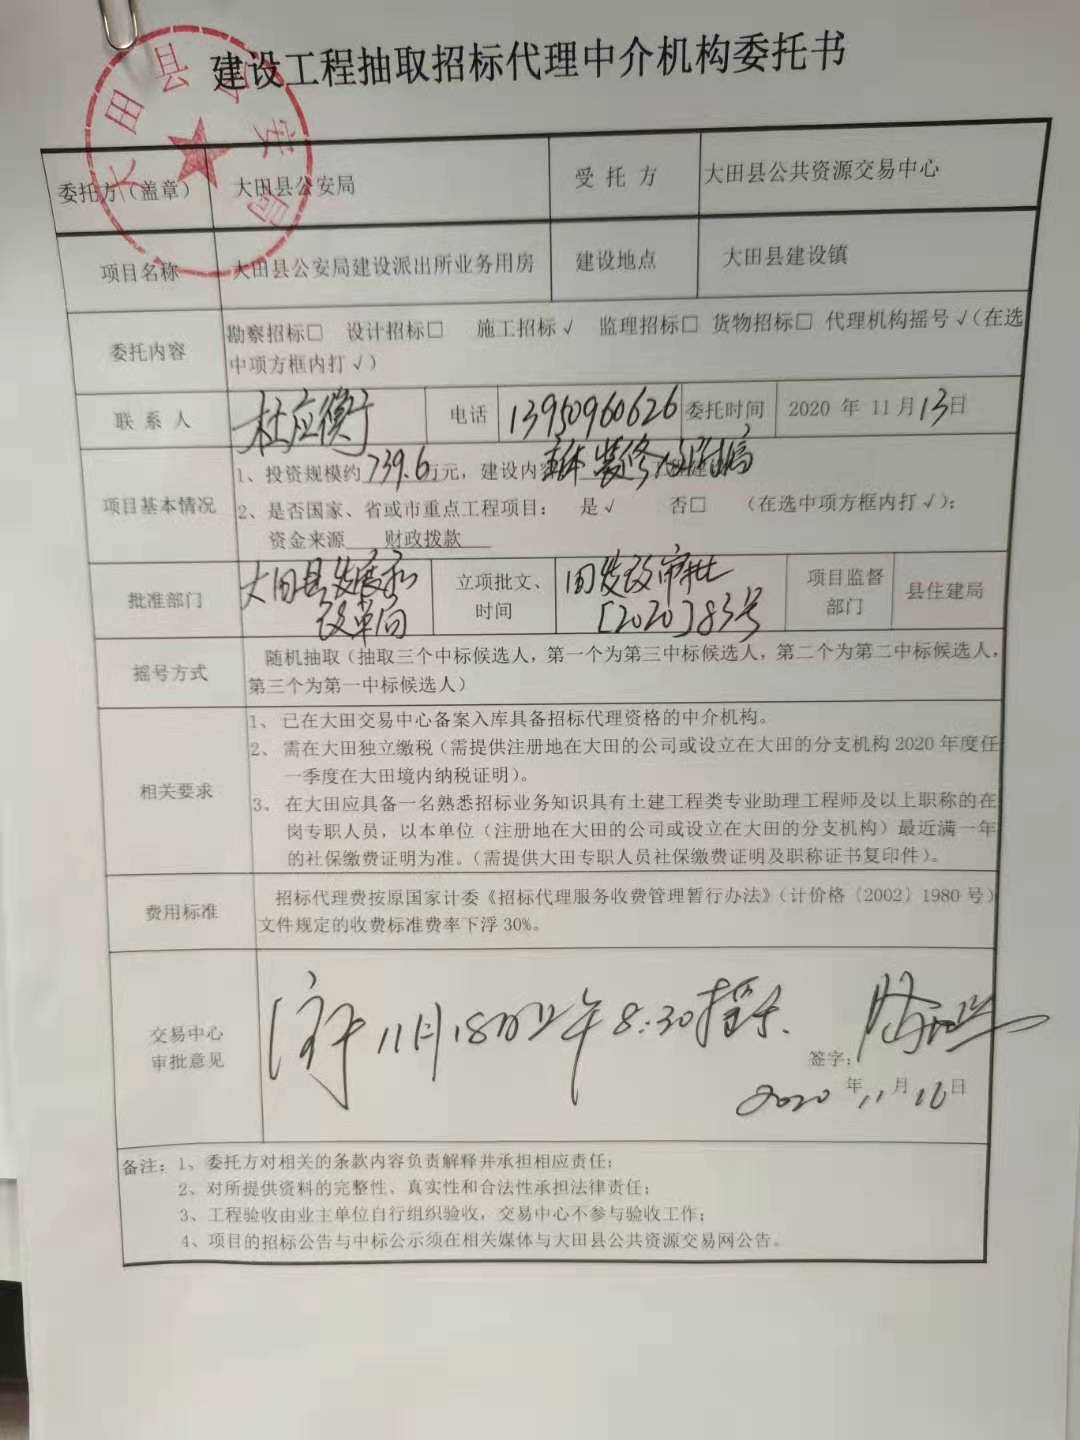 建设工程抽取招标代理中介机构委托书
大田县公安局
委托方（盖章） 大田县公安局 受托方 大田县公共资源交易中心
项目名称 大田县公安局建设派出所业务用房 建设地点 大田县建设镇
委托内容 勘察招标□ 设计招标□ 施工招标√ 监理招标□ 货物招标□ 代理机构摇号√（在选
中项方框内打√）
联系人 杜应衡 电话 13950960626 委托时间 2020 年 11 月 13 日
项目基本情况 1、投资规模约 739.6 万元，建设内容 装修
2、是否国家、省或市重点工程项目： 是√ 否□ （在选中项方框内打√）；
资金来源 财政拨款
批准部门 大田县发展和
改革局
立项批文、
时间
田发改审批
[2020]83号
项目监督
部门
县住建局
摇号方式 随机抽取（抽取三个中标候选人，第一个为第三中标候选人，第二个为第二中标候选人，
第三个为第一中标候选人）
相关要求
1、 已在大田交易中心备案入库具备招标代理资格的中介机构。
2、 需在大田独立缴税（需提供注册地在大田的公司或设立在大田的分支机构 2020 年度任
一季度在大田境内纳税证明）。
3、 在大田应具备一名熟悉招标业务知识具有土建工程类专业助理工程师及以上职称的在
岗专职人员，以本单位（注册地在大田的公司或设立在大田的分支机构）最近满一年
的社保缴费证明为准。（需提供大田专职人员社保缴费证明及职称证书复印件）。
费用标准 招标代理费按原国家计委《招标代理服务收费管理暂行办法》（计价格〔2002〕1980 号）
文件规定的收费标准费率下浮 30%。
交易中心
审批意见
11月18日上午8:30摇号.
签字：
2020 年 11 月 16 日
备注：1、委托方对相关的条款内容负责解释并承担相应责任；
2、对所提供资料的完整性、真实性和合法性承担法律责任；
3、工程验收由业主单位自行组织验收，交易中心不参与验收工作；
4、项目的招标公告与中标公示须在相关媒体与大田县公共资源交易网公告。